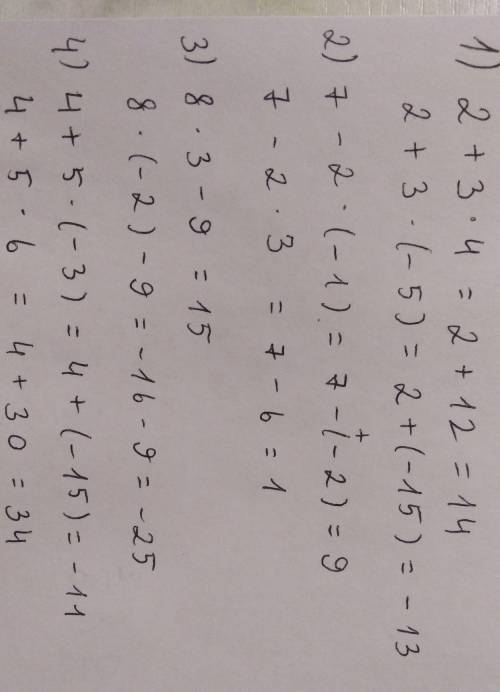 1) 2 + 3 · 4 = 2 + 12 = 14
2 + 3 · (-5) = 2 + (-15) = -13
2) 7 - 2 · (-1) = 7 -⁺(-2) = 9
7 - 2 · 3 = 7 - 6 = 1
3) 8 · 3 - 9 = 15
8 · (-2) - 9 = -16 - 9 = -25
4) 4 + 5 · (-3) = 4 + (-15) = -11
4 + 5 · 6 = 4 + 30 = 34